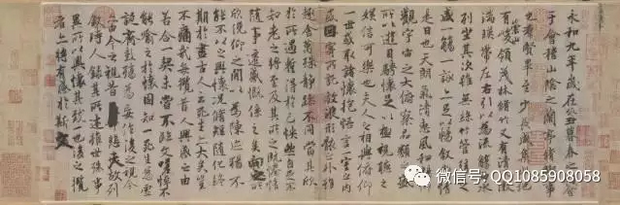 永和九年歲在癸丑暮春之初會
于會稽山陰之蘭亭脩稧事
也群賢畢至少長咸集此地
有崇山峻領茂林脩竹又有清流激
湍暎帶左右引以為流觴曲水
列坐其次雖無絲竹管弦之
盛一觴一詠亦足以暢敘幽情
是日也天朗氣清惠風和暢仰
觀宇宙之大俯察品類之盛
所以遊目騁懷足以極視聽之
娛信可樂也夫人之相與俯仰
一世或取諸懷抱悟言一室之內
或因寄所託放浪形骸之外雖
趣舍萬殊靜躁不同當其欣
於所遇蹔得於己怏然自足不
知老之將至及其所之既惓情
隨事遷感慨係之矣向之所
欣俛仰之閒以為陳迹猶不
能不以之興懷況脩短隨化終
期於盡古人云死生亦大矣豈
不痛哉每攬昔人興感之由
若合一契未嘗不臨文嗟悼不
能喻之於懷固知一死生為虛
誕齊彭殤為妄作後之視今
亦由今之視昔悲夫故列
敘時人錄其所述雖世殊事
異所以興懷其致一也後之攬
者亦將有感於斯文
微信号: QQ1085908058